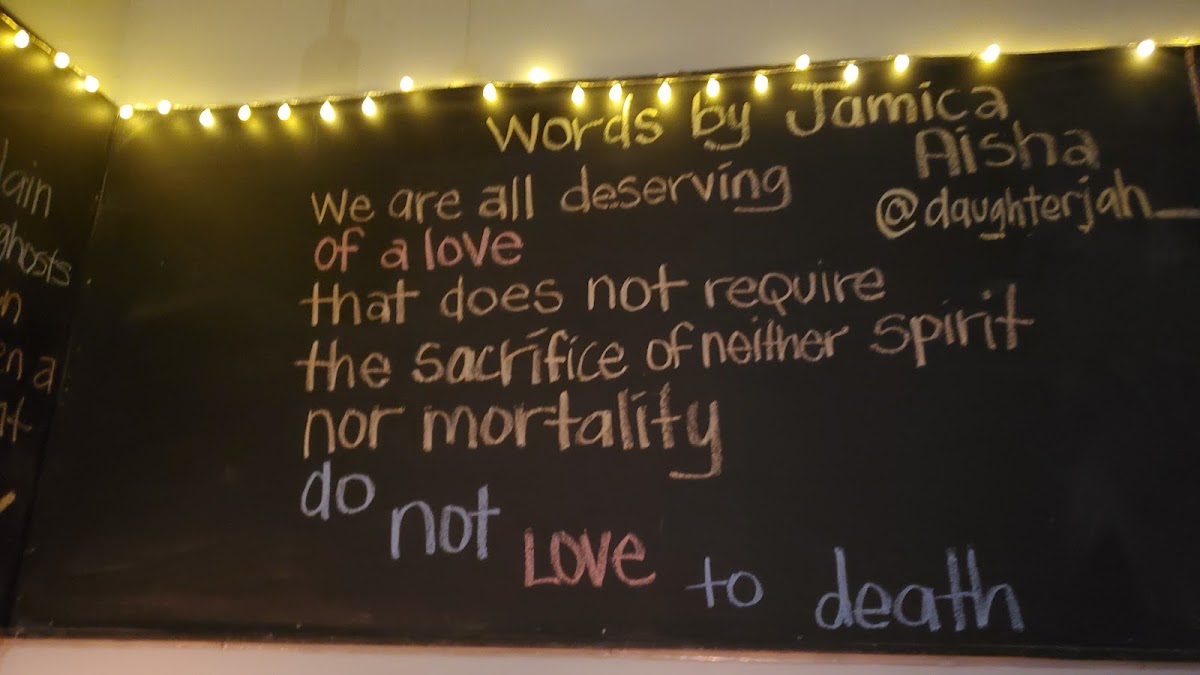 lain
ghosts
n
en a
Words by Jamica
Aisha
@daughterjah_
We are all deserving
of a love
that does not require
the sacrifice of neither spirit
nor mortality
do not LOVE to death